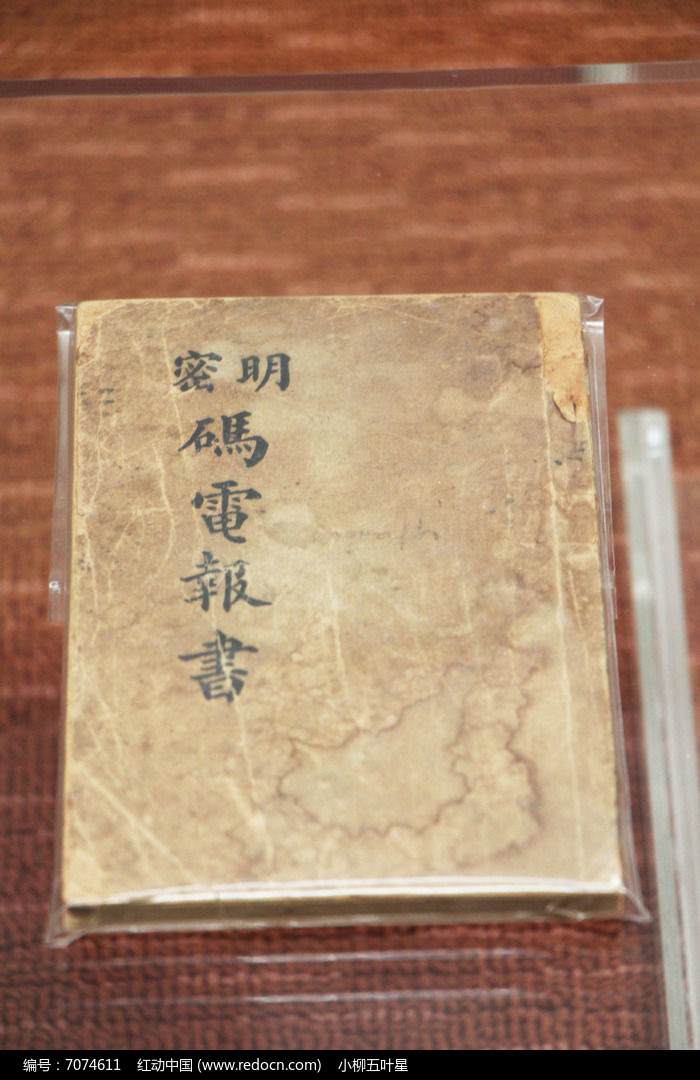 明密
碼電報書
编号：7074611 红动中国 (www.redocn.com) 小柳五叶星